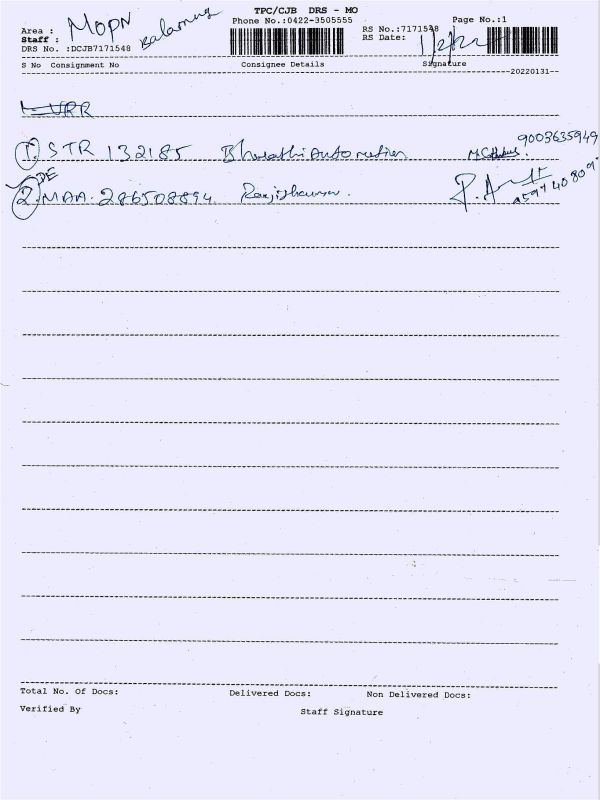 TPC/CJB DRS - MO
Area : MOPN Balamurug
Phone No.:0422-3505555
Page No.:1
Staff :
RS No.:7171548
DRS No. :DCJB7171548
RS Date: 1/2/22
S No Consignment No Consignee Details Signature
20220131
URR
1. STR 132185 Bharathi Automation 9003635949
PDE
2. MAA. 286508894 Ranjithkumar.
Total No. Of Docs: Delivered Docs: Non Delivered Docs:
Verified By Staff Signature